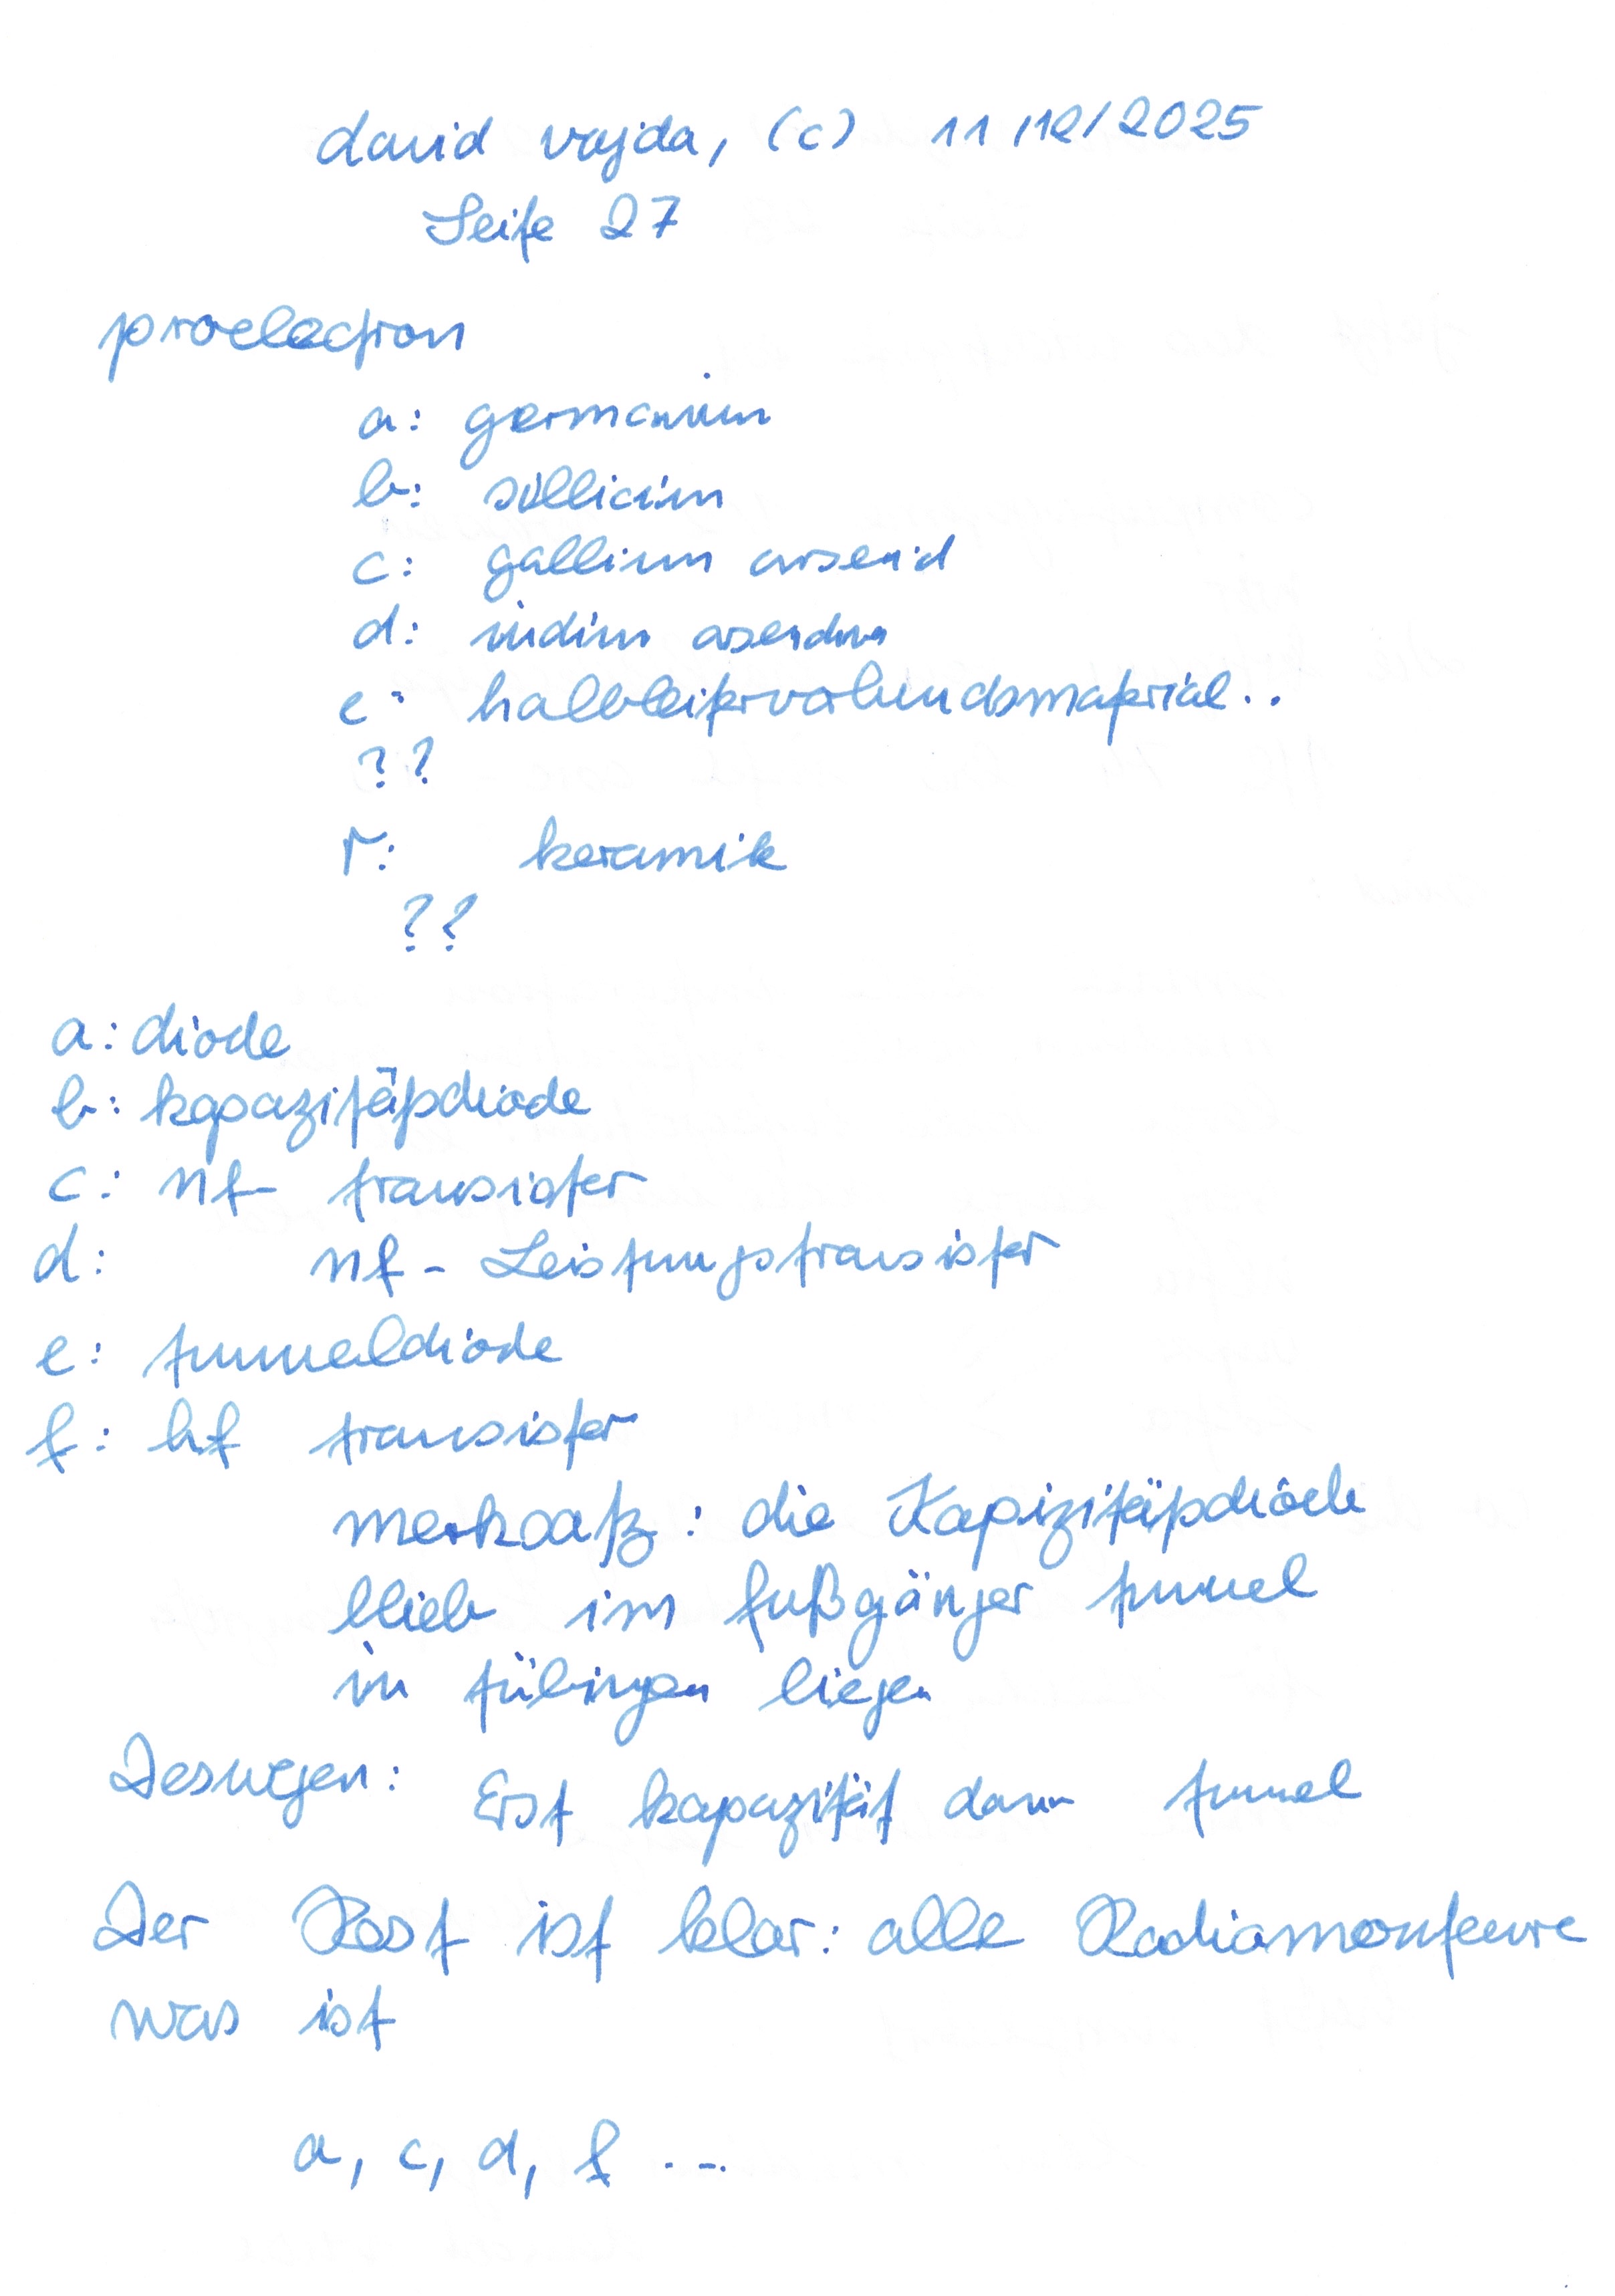 david vajda, (c) 11/12/2025
Seite 27
proelectron
a: germanium
b: sillicium
c: gallium arsenid
d: indium
e: halbleiterverbundsmaterial..
??
r: keramik
??
a: diode
b: kapazitätsdiode
c: nf- transistor
d: nf - Leistungstransistor
e: tunneldiode
f: hf transistor
merksatz: die Kapizitätsdiode
blieb im fußgänger tunnel
in tübingen liegen
Deswegen: Erst kapazität dann tunnel
Der Rest ist klar: alle Radiomonteure
was ist
a, c, d, f ...